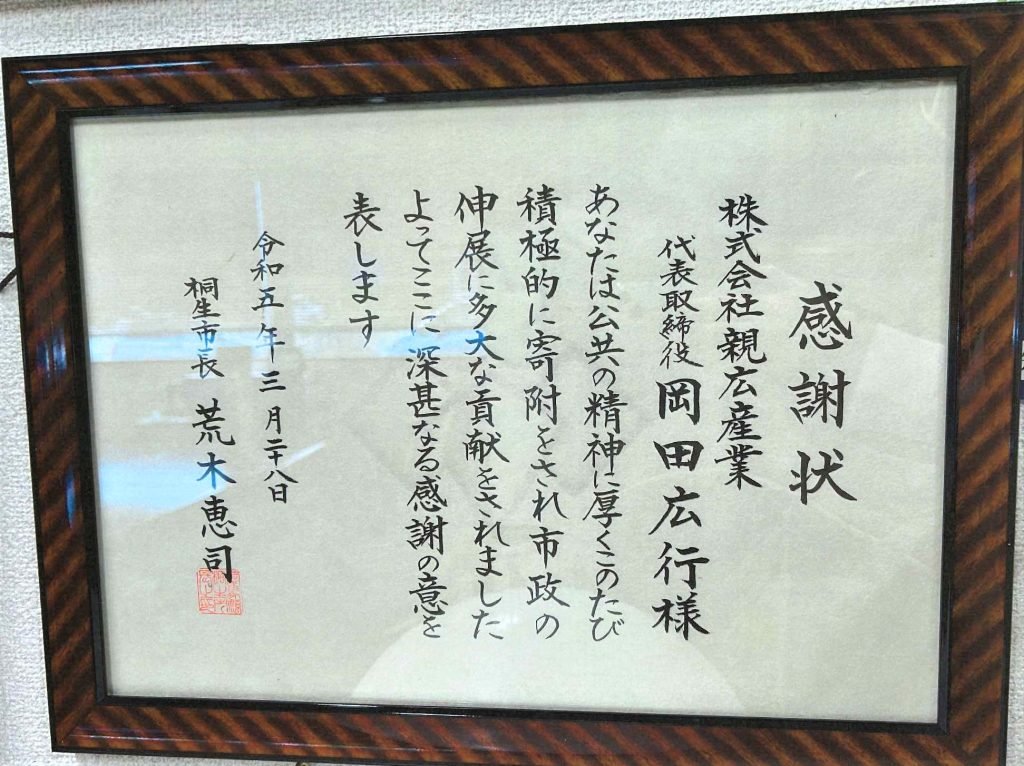 感謝状
株式会社親広産業
代表取締役 岡田広行様
あなたは公共の精神に厚くこのたび
積極的に寄附をされ市政の
伸展に多大な貢献をされました
よってここに深甚なる感謝の意を
表します
令和五年三月二十八日
桐生市長 荒木恵司